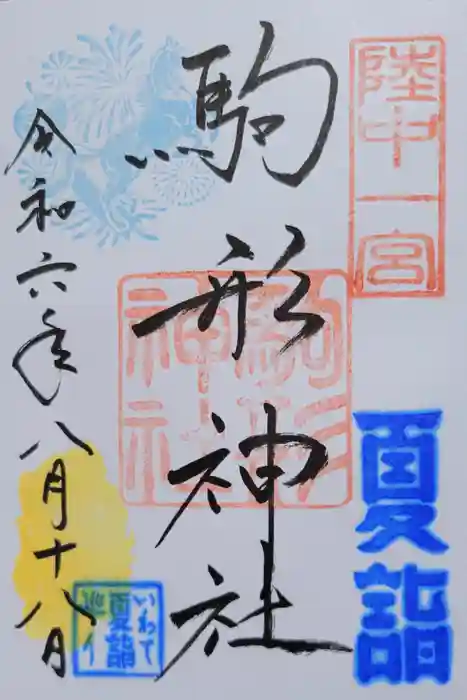 陸中一宮
夏詣
駒形神社
駒形神社
令和六年八月十八日
いわて
夏詣
巡り